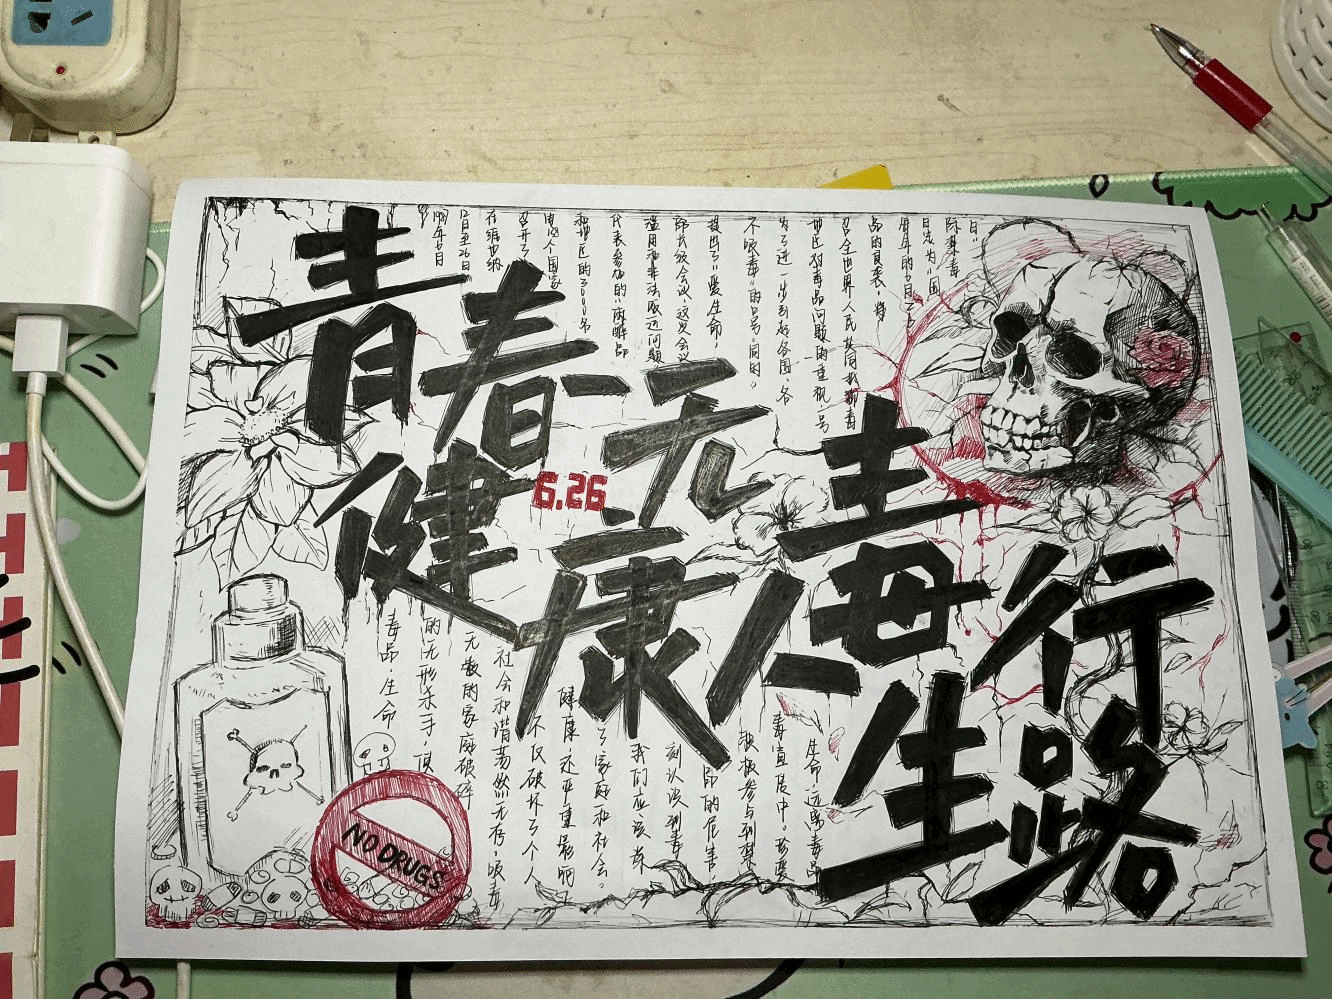 青春一无毒
健康人生行路
6.26
1987年6月
12日至26日
在维也纳
召开了
由138个国家
和地区的3000名
代表参加的“麻醉品
滥用和非法贩运问题
部长级会议”这次会议
提出了“爱生命，
不吸毒”的口号。同的。
为了进一步引起各国、各
地区对毒品问题的重视，号
召全世界人民共同抵御毒
品的自袭，将
每年的6月26
日定为“国
际禁毒
日”
毒品生命
的无形杀手，
无数的家庭破碎
社会和谐荡然无存，吸毒
不仅破坏了个人
健康，还严重影响
了家庭和社会。
我们应该深
刻认识到毒
品的危害
积极参与到禁
毒宣传中。珍爱
生命，远离毒品
NO DRUGS